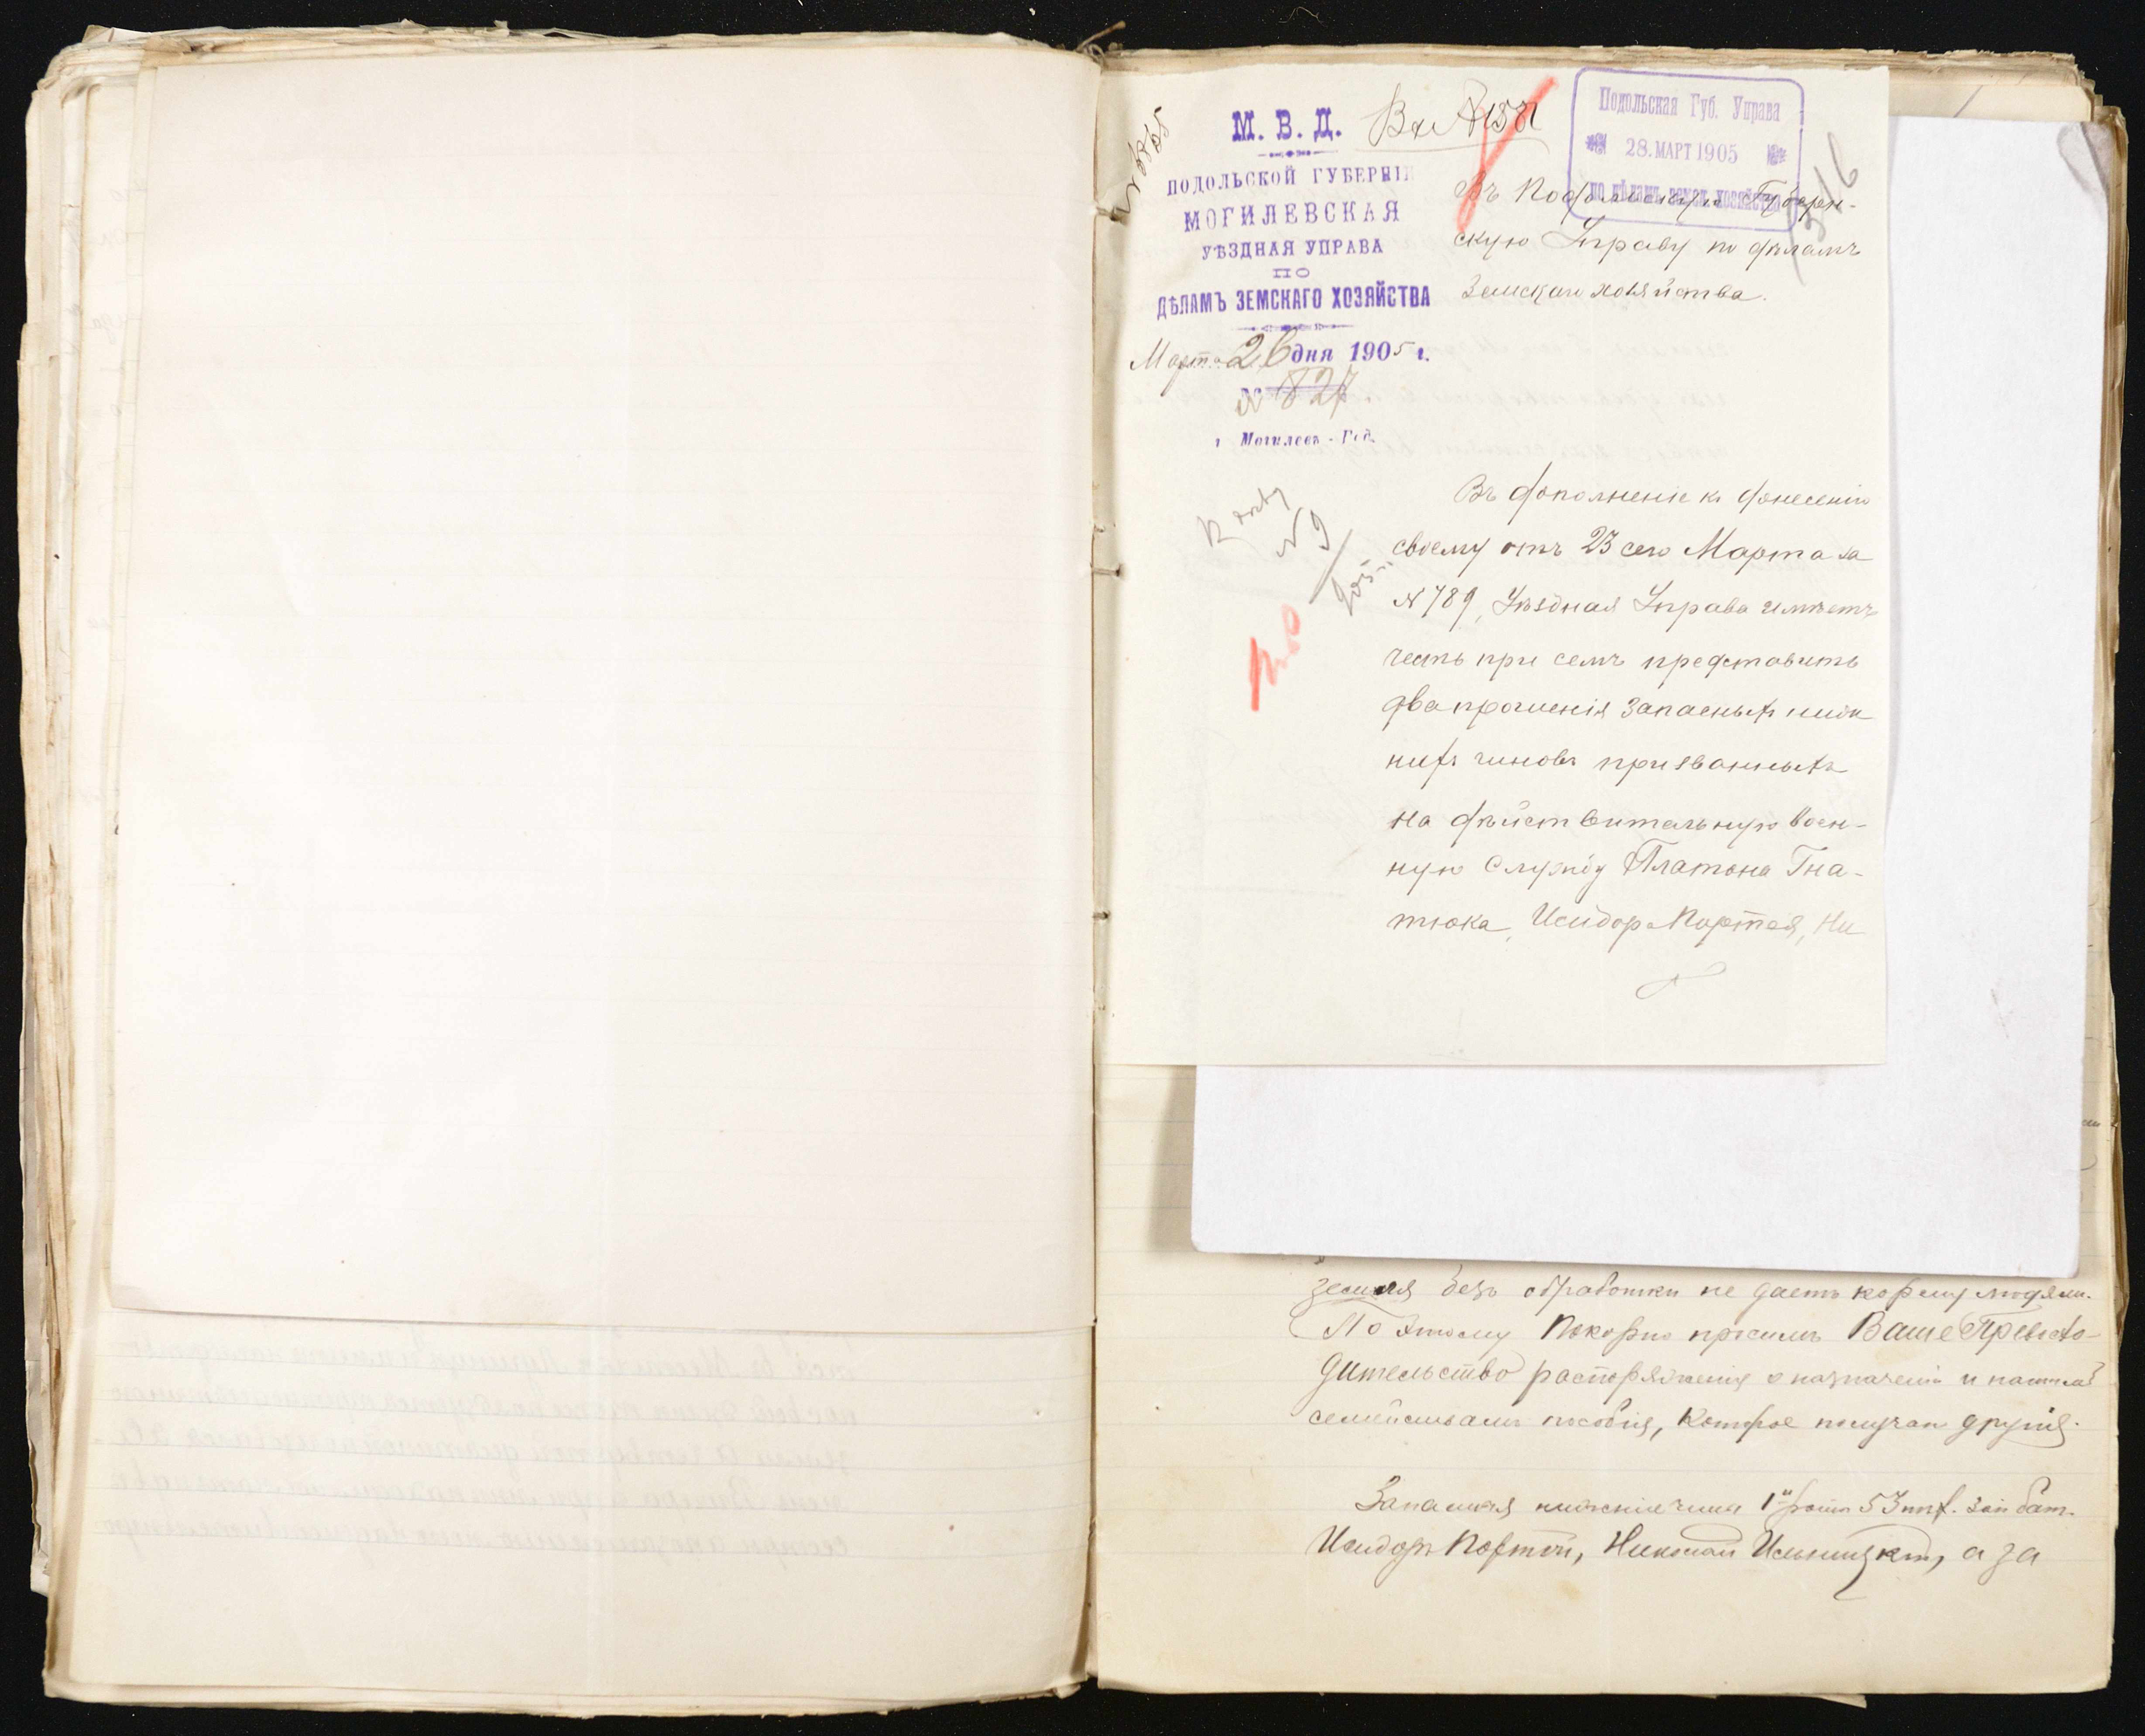 М. В. Д.
ПОДОЛЬСКОЙ ГУБЕРНІИ
МОГИЛЕВСКАЯ
УѢЗДНАЯ УПРАВА
ПО
ДѢЛАМЪ ЗЕМСКАГО ХОЗЯЙСТВА
Марта 26 дня 1905 г.
№ 827
г. Могилевъ-Под.
Вх №
Подольская Губ. Управа
28. МАРТ 1905
по дѣламъ земск. хозяйства
Въ Подольскую Губерн-
скую Управу по дѣламъ
Земскаго хозяйства.
№ 9
Въ дополненіе къ донесенію
своему отъ 23 сего Марта за
№ 789, Уѣздная Управа имѣетъ
честь при семъ представить
два прошенія запасныхъ ниж
нихъ чиновъ призванныхъ
на дѣйствительную воен-
ную службу Платона Гна-
тюка, Исидора Портея, Ни
земля безъ обработки не даетъ корму людям.
По этому Покорно просимъ Ваше Превысхо-
дительство распоряженія о назначеніи и нашимъ
семействамъ пособія, которое получаю другія.
Запасныя нижніе чины 1й роты 53 пѣх. зап бат.
Исидоръ Портей, Николай Ильницкій, а за